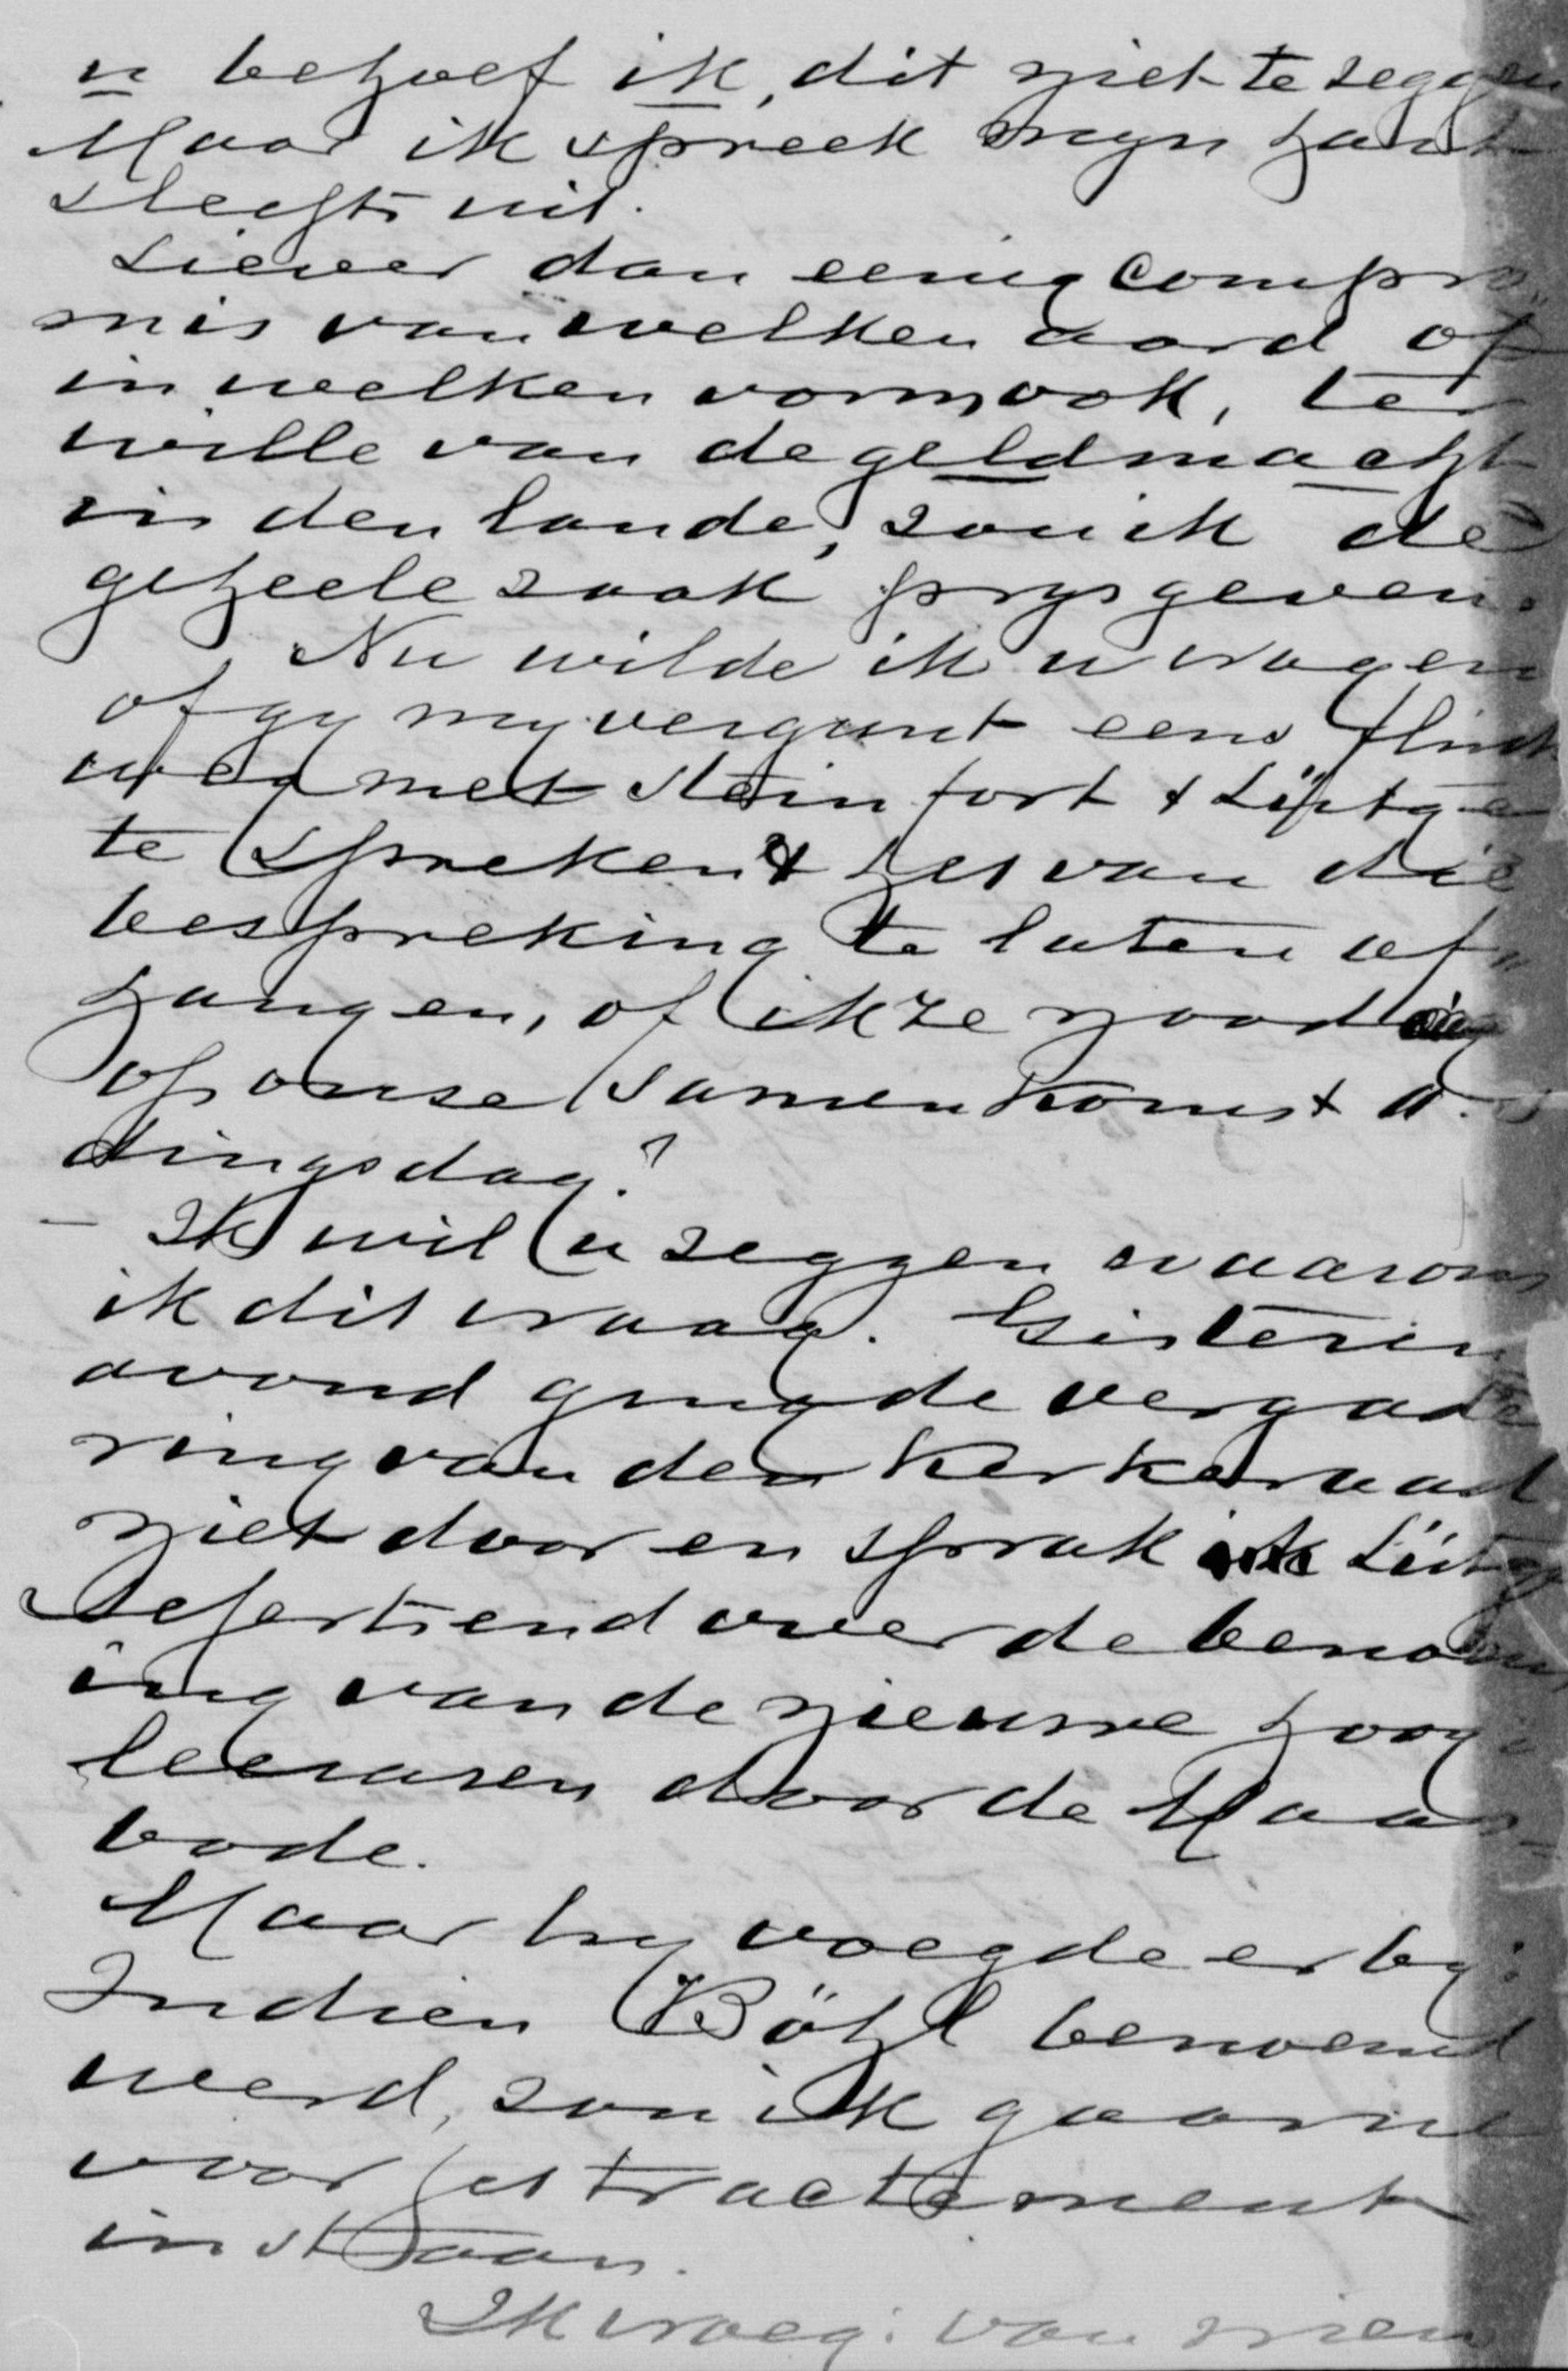 u behoef ik, dit niet te zeggen
Maar ik spreek myn hart
slechts uit.
Liever dan eenig compro
mis van welken aard of
in welken vorm ook, ter
wille van de geldmacht
in den lande, zou ik de
geheele zaak prysgeven.
Nu wilde ik u vragen
of gy my vergunt eens flink
weg met Steinfort & Lütge
te spreken & het van die
bespreking te laten af-
hangen, of ik ze noodig
op onze samenkomst a.s
dingsdag?
– Ik wil u zeggen waarom
ik dit vraag. Gisteren
avond ging de vergade
ring van den Kerkeraad
niet door en sprak ik Lütge
schertsend over de benoem
ing van de nieuwe hoog-
leeraren door de Maas-
bode.
Maar hy voegde er by:
Indien Böhl benoemd
werd, zou ik gaarne
voor het tractement
instaan.
Ik vroeg: van wien